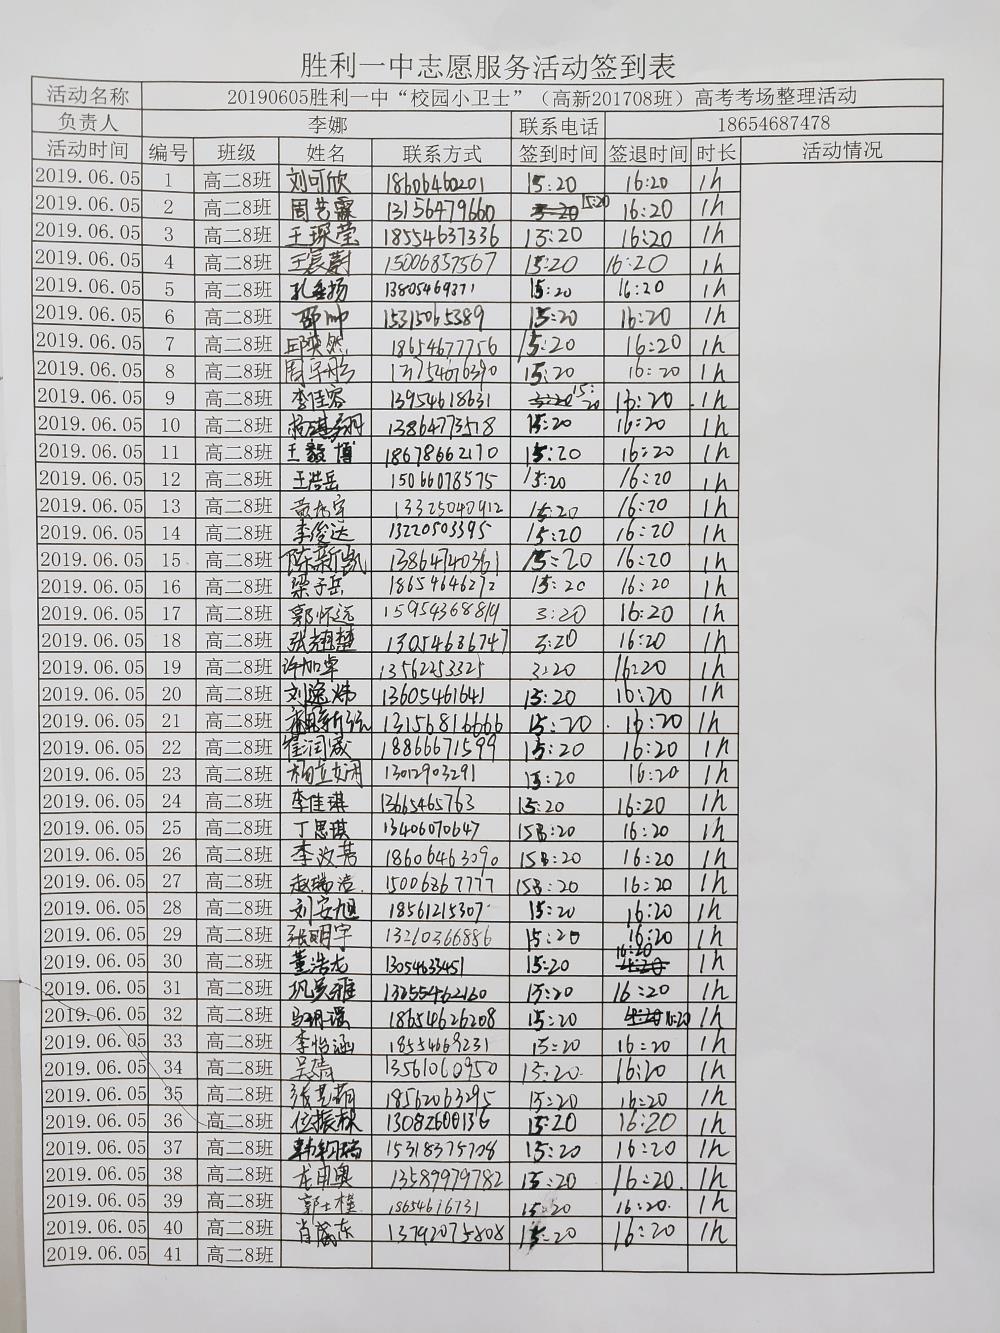 胜利一中志愿服务活动签到表
活动名称 20190605胜利一中“校园小卫士”（高新201708班）高考考场整理活动
负责人 李娜 联系电话 18654687478
活动时间 编号 班级 姓名 联系方式 签到时间 签退时间 时长 活动情况
2019.06.05 1 高二8班 刘可欣 18606460201 15:20 16:20 1h
2019.06.05 2 高二8班 周艺霖 13156479660 15:20 16:20 1h
2019.06.05 3 高二8班 王琛莹 18554637336 15:20 16:20 1h
2019.06.05 4 高二8班 王辰蔚 15006857567 15:20 16:20 1h
2019.06.05 5 高二8班 孔垂扬 13805469371 15:20 16:20 1h
2019.06.05 6 高二8班 邵帅 15315065389 15:20 16:20 1h
2019.06.05 7 高二8班 邱奕然 18654677756 15:20 16:20 1h
2019.06.05 8 高二8班 15:20 16:20 1h
2019.06.05 9 高二8班 李佳容 13954618631 15:20 16:20 1h
2019.06.05 10 高二8班 13864773518 15:20 16:20 1h
2019.06.05 11 高二8班 王毅博 18678662170 15:20 16:20 1h
2019.06.05 12 高二8班 王浩岳 15066078575 15:20 16:20 1h
2019.06.05 13 高二8班 13325040912 15:20 16:20 1h
2019.06.05 14 高二8班 李俊达 13220503395 15:20 16:20 1h
2019.06.05 15 高二8班 陈新凯 13864740361 15:20 16:20 1h
2019.06.05 16 高二8班 梁子岳 18654646272 15:20 16:20 1h
2019.06.05 17 高二8班 郭怀远 15954368819 3:20 16:20 1h
2019.06.05 18 高二8班 张翘楚 13054686747 3:20 16:20 1h
2019.06.05 19 高二8班 许加卓 13562253325 3:20 16:20 1h
2019.06.05 20 高二8班 刘逸炜 13605461641 15:20 16:20 1h
2019.06.05 21 高二8班 13156816666 15:20 16:20 1h
2019.06.05 22 高二8班 崔润晟 18866671599 15:20 16:20 1h
2019.06.05 23 高二8班 杨立娴 13012903291 15:20 16:20 1h
2019.06.05 24 高二8班 李佳琪 13665465763 15:20 16:20 1h
2019.06.05 25 高二8班 丁思琪 13406070647 15:20 16:20 1h
2019.06.05 26 高二8班 李汶茜 18606463090 15:20 16:20 1h
2019.06.05 27 高二8班 赵瑞洁 15006867777 15:20 16:20 1h
2019.06.05 28 高二8班 刘安旭 18561215307 15:20 16:20 1h
2019.06.05 29 高二8班 张明宇 13210366886 15:20 16:20 1h
2019.06.05 30 高二8班 董浩龙 1305463345​1 15:20 16:20 1h
2019.06.05 31 高二8班 13255462160 15:20 16:20 1h
2019.06.05 32 高二8班 18654626208 15:20 16:20 1h
2019.06.05 33 高二8班 李怡涵 18554669231 15:20 16:20 1h
2019.06.05 34 高二8班 吴倩 13561060950 15:20 16:20 1h
2019.06.05 35 高二8班 18562063295 15:20 16:20 1h
2019.06.05 36 高二8班 位振棋 13082600136 15:20 16:20 1h
2019.06.05 37 高二8班 15318375708 15:20 16:20 1h
2019.06.05 38 高二8班 龙申奥 13589979782 15:20 16:20 1h
2019.06.05 39 高二8班 郭士槿 18654616731 15:20 16:20 1h
2019.06.05 40 高二8班 肖晟东 13792075808 15:20 16:20 1h
2019.06.05 41 高二8班